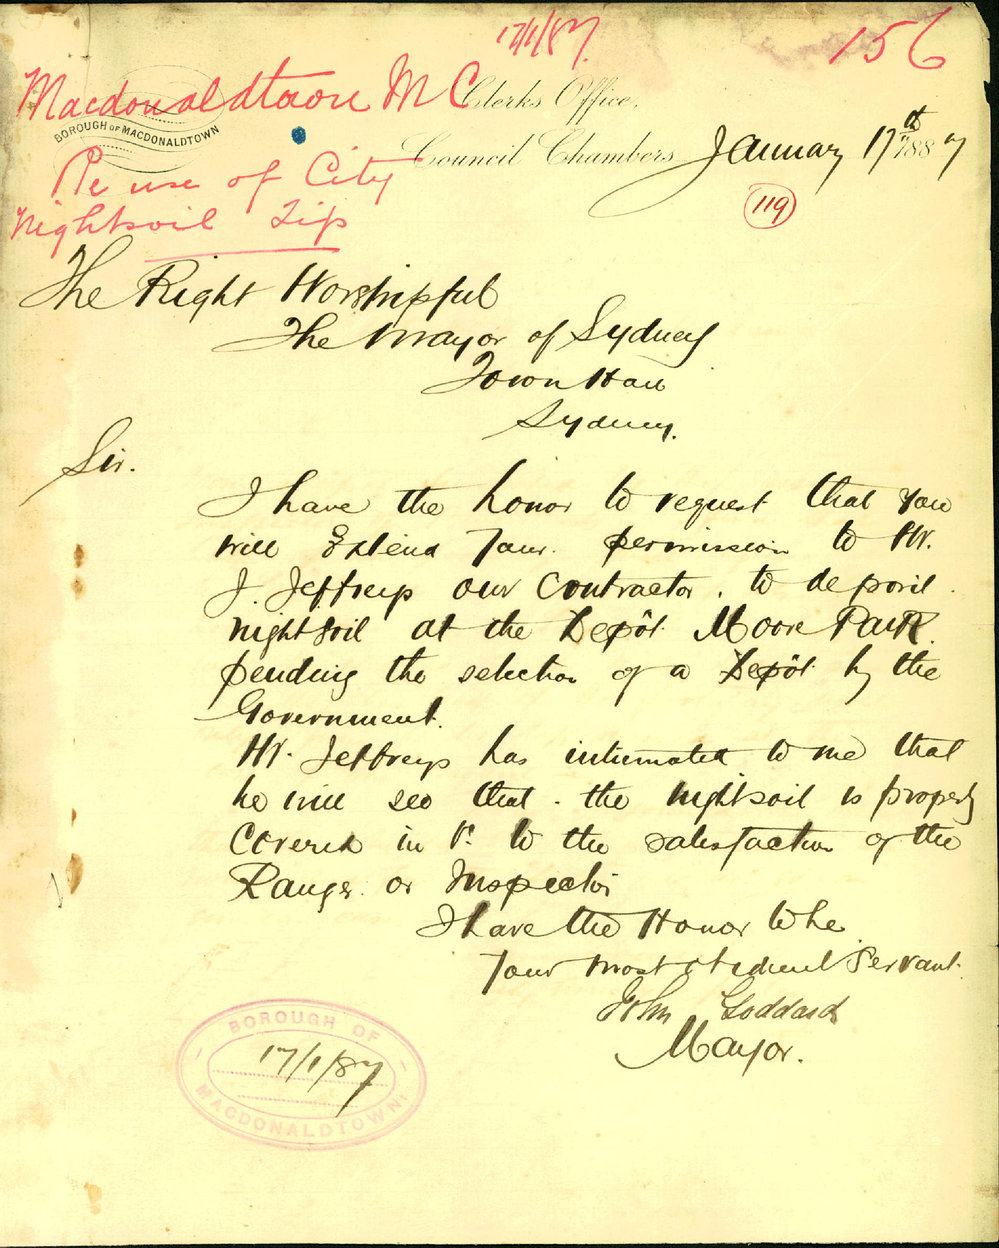 17/1/87.
156
Macdonaldtown M C
Clerks Office,
BOROUGH OF MACDONALDTOWN
Council Chambers
January 17th 1887
Re use of City
Nightsoil Tip
119
The Right Worshipful
The Mayor of Sydney
Town Hall
Sydney.
Sir.
I have the honor to request that you
will Extend your permission to Mr.
J. Jeffreys our Contractor. to deposit
nightsoil at the Depôt Moore Park.
pending the selection of a Depôt by the
Government.
Mr. Jeffreys has intimated to me that
he will see that the nightsoil is properly
covered in & to the satisfaction of the
Ranger or Inspector
I have the Honor to be
Your most obedient Servant.
John Goddard
Mayor.
BOROUGH OF
17/1/87
MACDONALDTOWN